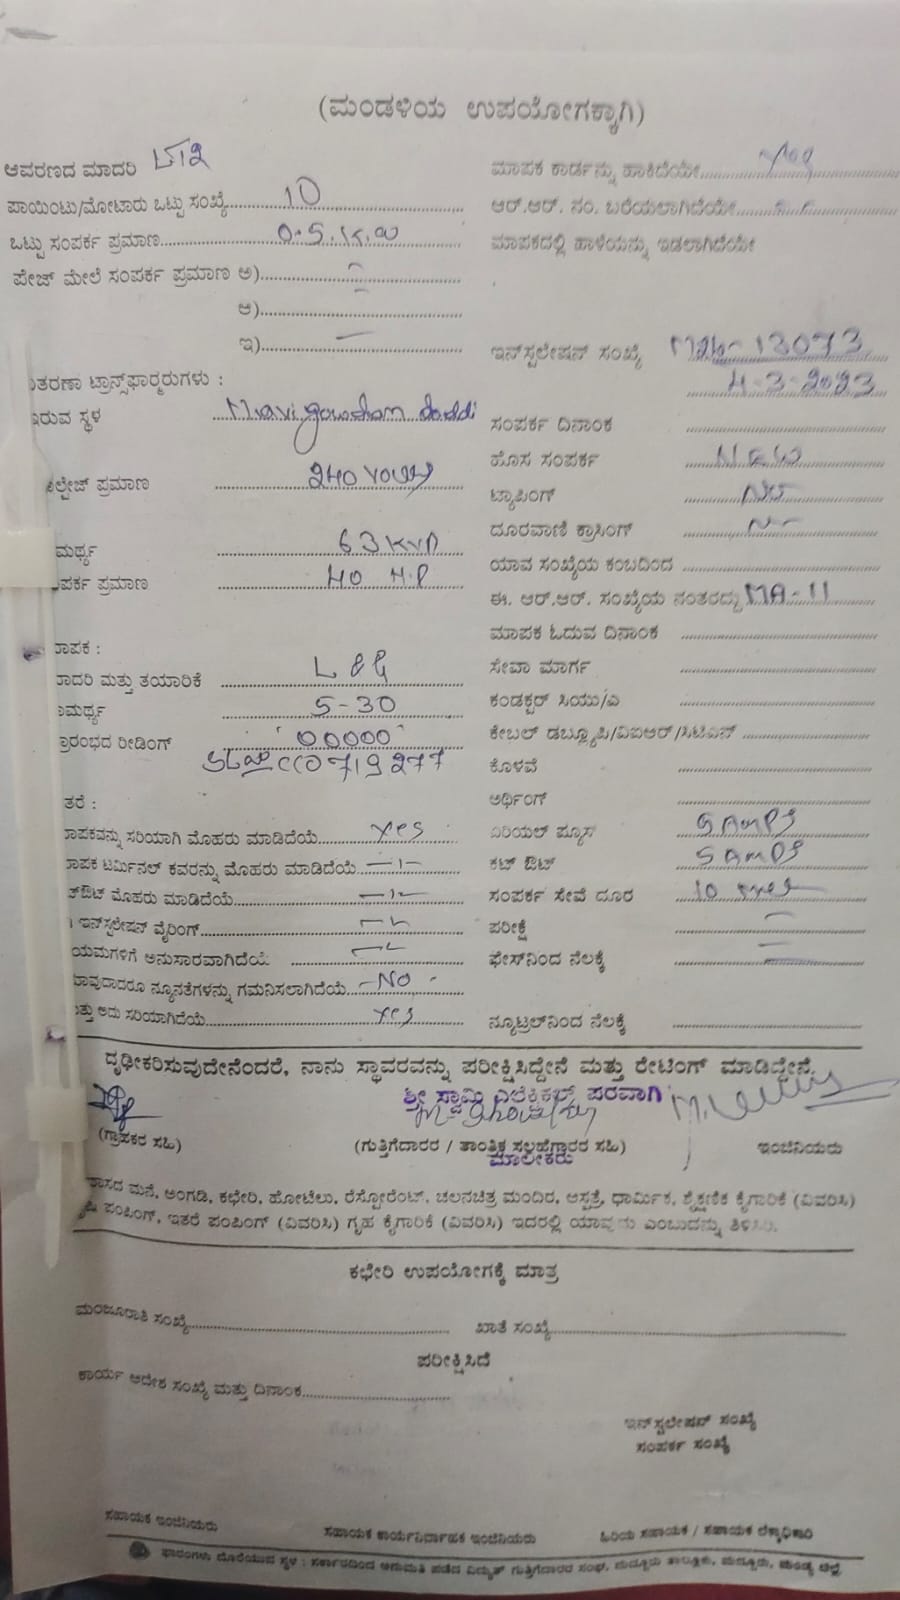 (ಮಂಡಳಿಯ ಉಪಯೋಗಕ್ಕಾಗಿ)
ಆವರಣದ ಮಾದರಿ LT2
ಪಾಯಿಂಟು/ಮೋಟಾರು ಒಟ್ಟು ಸಂಖ್ಯೆ 10
ಒಟ್ಟು ಸಂಪರ್ಕ ಪ್ರಮಾಣ 0.5 K.W
ಪೇಜ್ ಮೇಲೆ ಸಂಪರ್ಕ ಪ್ರಮಾಣ ಅ)
ಆ)
ಇ) —
ತರಣಾ ಟ್ರಾನ್ಸ್‌ಫಾರ್ಮರುಗಳು :
ಇರುವ ಸ್ಥಳ doddi
ಲ್ಟೇಜ್ ಪ್ರಮಾಣ 240 volts
ಮರ್ಥ್ಯ 63 KVA
ಪರ್ಕ ಪ್ರಮಾಣ 40 H.P
ಾಪಕ :
ಮಾದರಿ ಮತ್ತು ತಯಾರಿಕೆ L & G
ಾಮರ್ಥ್ಯ 5-30
ಪ್ರಾರಂಭದ ರೀಡಿಂಗ್ 00000
0719277
ತರೆ :
ಮಾಪಕವನ್ನು ಸರಿಯಾಗಿ ಮೊಹರು ಮಾಡಿದೆಯೆ yes
ಮಾಪಕ ಟರ್ಮಿನಲ್ ಕವರನ್ನು ಮೊಹರು ಮಾಡಿದೆಯೆ —1—
ಟ್‌ಔಟ್ ಮೊಹರು ಮಾಡಿದೆಯೆ —1—
ಇನ್‌ಸ್ಟಲೇಷನ್ ವೈರಿಂಗ್
ಯಮಗಳಿಗೆ ಅನುಸಾರವಾಗಿದೆಯೆ
ಯಾವುದಾದರೂ ನ್ಯೂನತೆಗಳನ್ನು ಗಮನಿಸಲಾಗಿದೆಯೆ NO
ಮತ್ತು ಅದು ಸರಿಯಾಗಿದೆಯೆ yes
ಮಾಪಕ ಕಾರ್ಡನ್ನು ಹಾಕಿದೆಯೇ yes
ಆರ್.ಆರ್. ನಂ. ಬರೆಯಲಾಗಿದೆಯೇ
ಮಾಪಕದಲ್ಲಿ ಹಾಳೆಯನ್ನು ಇಡಲಾಗಿದೆಯೇ
ಇನ್‌ಸ್ಟಲೇಷನ್ ಸಂಖ್ಯೆ 13073
4-3-2023
ಸಂಪರ್ಕ ದಿನಾಂಕ
ಹೊಸ ಸಂಪರ್ಕ NEW
ಟ್ಯಾಪಿಂಗ್ No
ದೂರವಾಣಿ ಕ್ರಾಸಿಂಗ್
ಯಾವ ಸಂಖ್ಯೆಯ ಕಂಬದಿಂದ
ಈ. ಆರ್.ಆರ್. ಸಂಖ್ಯೆಯ ನಂತರದ್ದು MA-11
ಮಾಪಕ ಓದುವ ದಿನಾಂಕ
ಸೇವಾ ಮಾರ್ಗ
ಕಂಡಕ್ಟರ್ ಸಿಯು/ಎ
ಕೇಬಲ್ ಡಬ್ಲ್ಯೂಪಿ/ವಿಐಆರ್/ಸಿಟಿಎಸ್
ಕೊಳವೆ
ಅರ್ಥಿಂಗ್
ಏರಿಯಲ್ ಫ್ಯೂಸ್ 5 AMPS
ಕಟ್ ಔಟ್ 5 AMPS
ಸಂಪರ್ಕ ಸೇವೆ ದೂರ 10
ಪರೀಕ್ಷೆ
ಫೇಸ್‌ನಿಂದ ನೆಲಕ್ಕೆ
ನ್ಯೂಟ್ರಲ್‌ನಿಂದ ನೆಲಕ್ಕೆ
ದೃಢೀಕರಿಸುವುದೇನೆಂದರೆ, ನಾನು ಸ್ಥಾವರವನ್ನು ಪರೀಕ್ಷಿಸಿದ್ದೇನೆ ಮತ್ತು ರೇಟಿಂಗ್ ಮಾಡಿದ್ದೇನೆ.
ಶ್ರೀ ಸ್ವಾಮಿ ಎಲೆಕ್ಟ್ರಿಕಲ್ಸ್ ಪರವಾಗಿ
(ಗ್ರಾಹಕರ ಸಹಿ) (ಗುತ್ತಿಗೆದಾರರ / ತಾಂತ್ರಿಕ ಸಲಹೆಗಾರರ ಸಹಿ) ಇಂಜಿನಿಯರು
ಮಾಲೀಕರು
ವಾಸದ ಮನೆ, ಅಂಗಡಿ, ಕಛೇರಿ, ಹೋಟೆಲು, ರೆಸ್ಟೋರೆಂಟ್, ಚಲನಚಿತ್ರ ಮಂದಿರ, ಆಸ್ಪತ್ರೆ, ಧಾರ್ಮಿಕ, ಶೈಕ್ಷಣಿಕ ಕೈಗಾರಿಕೆ (ವಿವರಿಸಿ)
ಪಂಪಿಂಗ್, ಇತರೆ ಪಂಪಿಂಗ್ (ವಿವರಿಸಿ) ಗೃಹ ಕೈಗಾರಿಕೆ (ವಿವರಿಸಿ) ಇದರಲ್ಲಿ ಯಾವುದು ಎಂಬುದನ್ನು ತಿಳಿಸಿರಿ.
ಕಛೇರಿ ಉಪಯೋಗಕ್ಕೆ ಮಾತ್ರ
ಮಂಜೂರಾತಿ ಸಂಖ್ಯೆ ಖಾತೆ ಸಂಖ್ಯೆ
ಪರೀಕ್ಷಿಸಿದೆ
ಕಾರ್ಯ ಆದೇಶ ಸಂಖ್ಯೆ ಮತ್ತು ದಿನಾಂಕ
ಇನ್‌ಸ್ಟಲೇಷನ್ ಸಂಖ್ಯೆ
ಸಂಪರ್ಕ ಸಂಖ್ಯೆ
ಸಹಾಯಕ ಇಂಜಿನಿಯರು ಸಹಾಯಕ ಕಾರ್ಯನಿರ್ವಾಹಕ ಇಂಜಿನಿಯರು ಹಿರಿಯ ಸಹಾಯಕ / ಸಹಾಯಕ ಲೆಕ್ಕಾಧಿಕಾರಿ
ಫಾರಂಗಳು ದೊರೆಯುವ ಸ್ಥಳ : ಸರ್ಕಾರದಿಂದ ಅನುಮತಿ ಪಡೆದ ವಿದ್ಯುತ್ ಗುತ್ತಿಗೆದಾರರ ಸಂಘ, ಮದ್ದೂರು ತಾಲ್ಲೂಕು, ಮದ್ದೂರು, ಮಂಡ್ಯ ಜಿಲ್ಲೆ